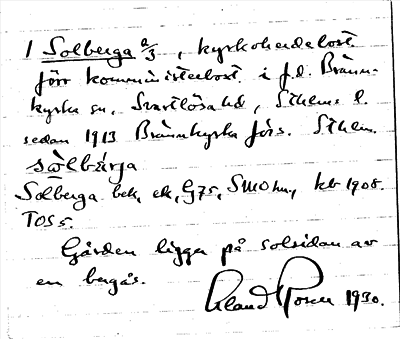 1 Solberga 2/3, kyrkoherdebost.
förr kommunisterbost. i f.d. Bränn-
kyrka sn, Svartlösa hd, Sthlms l.
sedan 1913 Brännkyrka förs. Sthlm.
sòlbärja
Solberga bek. ek, G75, SMOhm, kb 1908.
TOS 5.
Gården ligger på solsidan av
en bergås.
Rosén 1930.